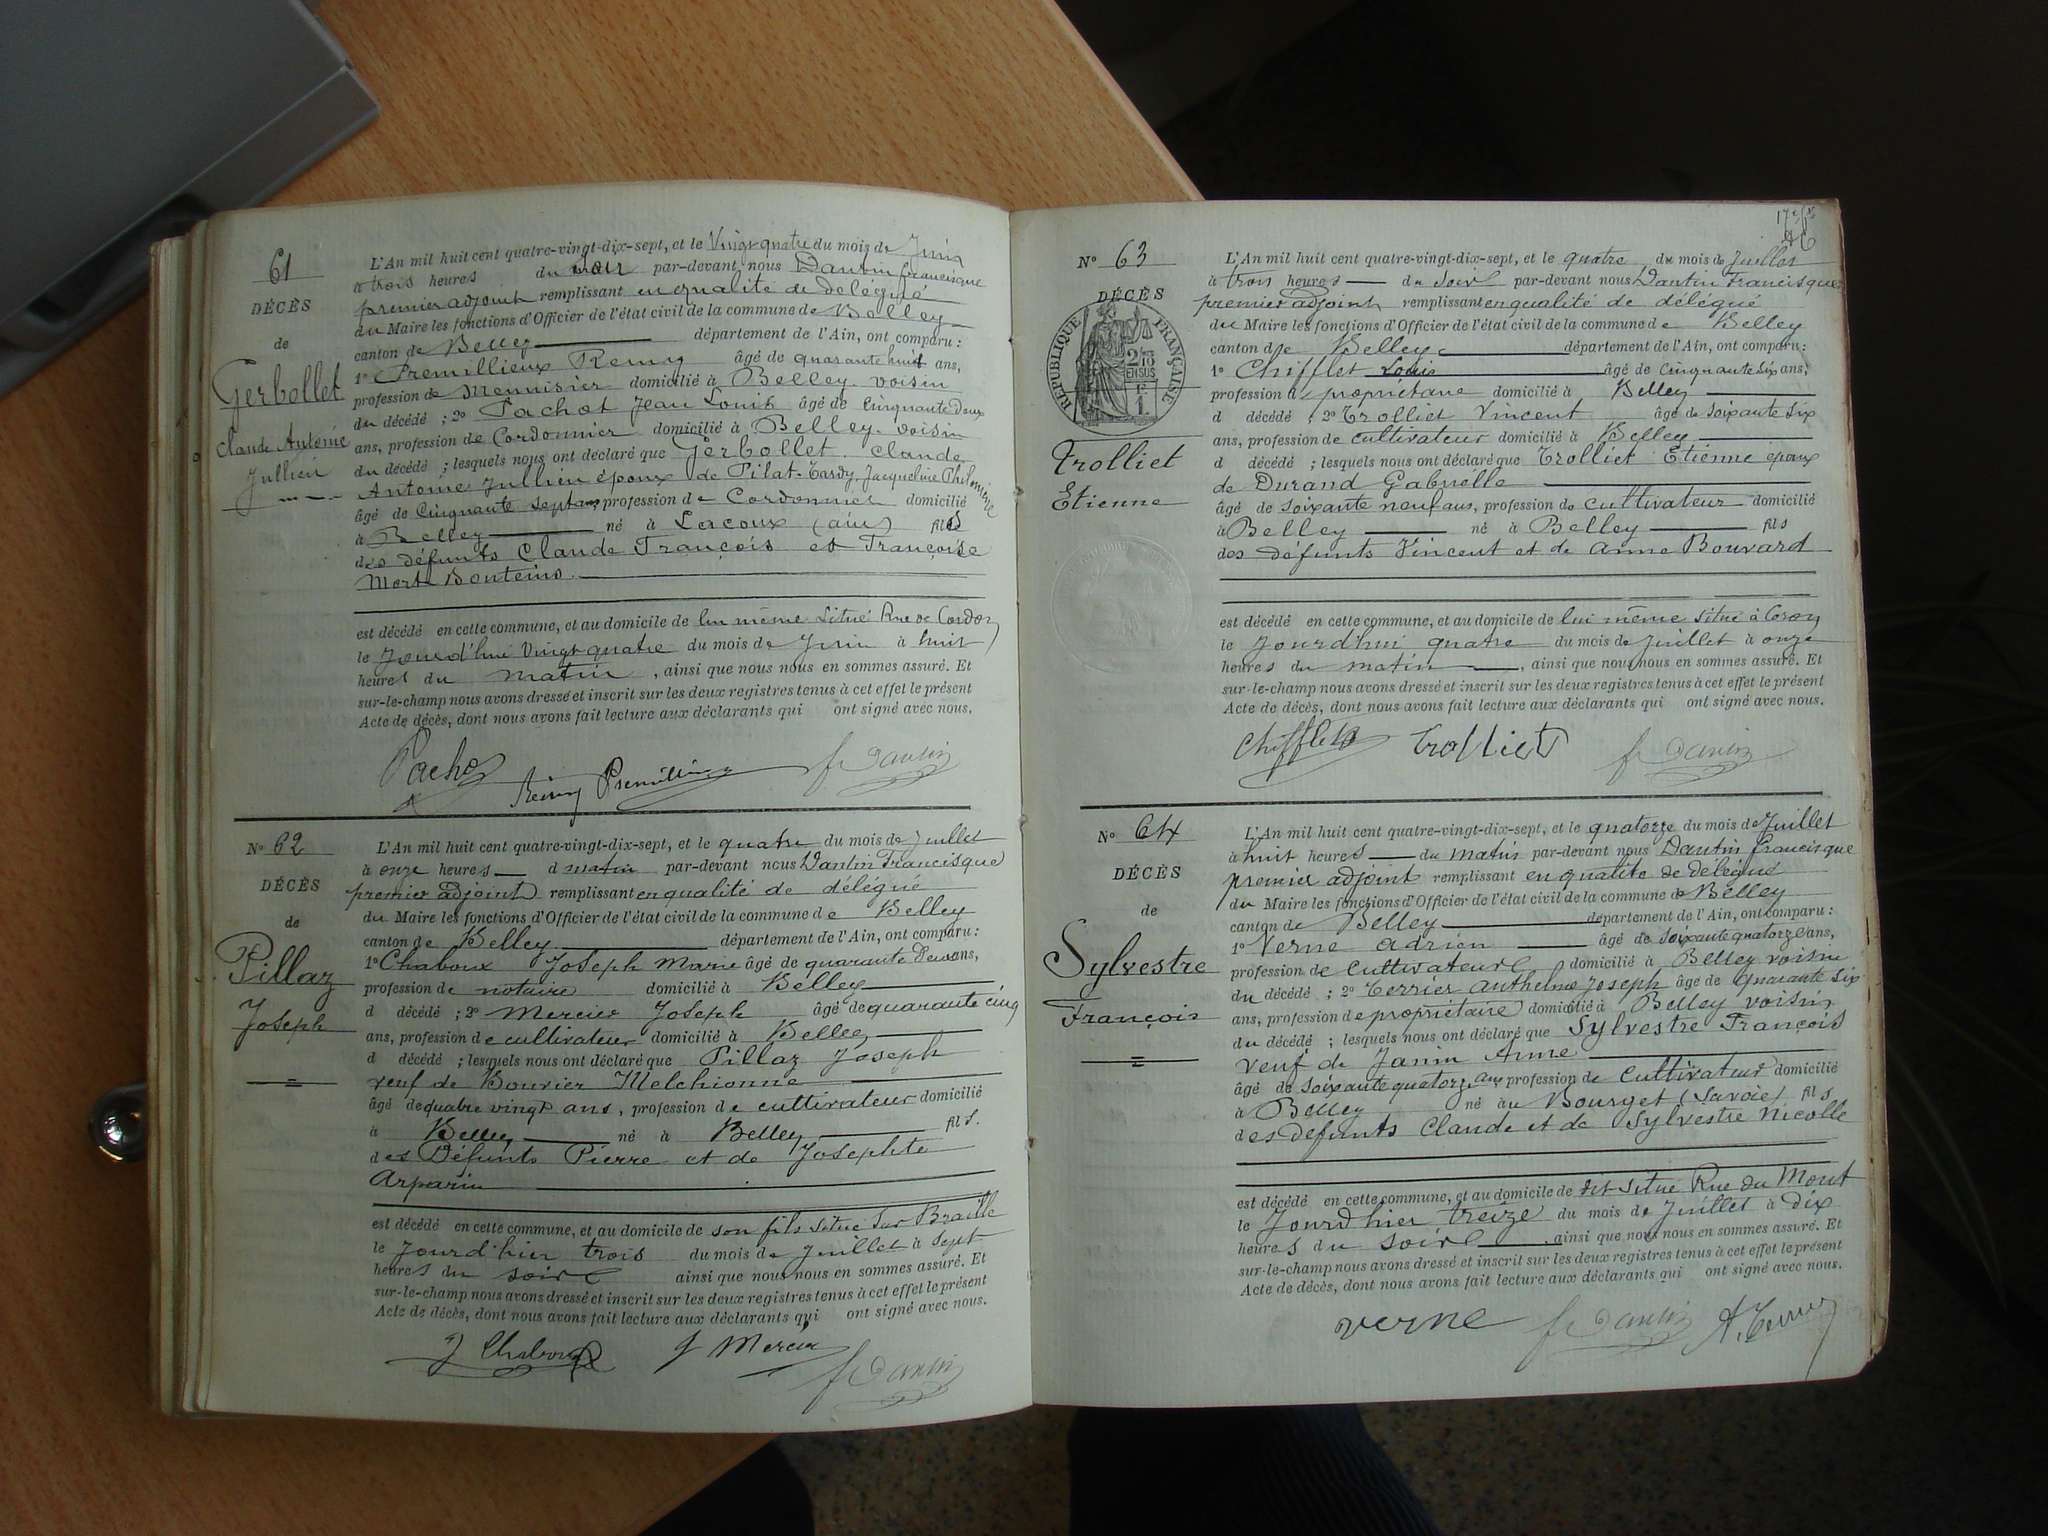 61
DÉCÈS
de
Gerbollet
Claude Antoine
Jullien
L'An mil huit cent quatre-vingt-dix-sept, et le Vingt quatre du mois de Juin
à trois heures du soir par-devant nous Dantin Francisque
premier adjoint remplissant en qualité de délégué
du Maire les fonctions d'Officier de l'état civil de la commune de Belley
canton de Belley département de l'Ain, ont comparu :
1º Premillieux Remy âgé de quarante huit ans,
profession de Menuisier domicilié à Belley voisin
du décédé ; 2º Pachot Jean Louis âgé de Cinquante Deux
ans, profession de Cordonnier domicilié à Belley voisin
du décédé ; lesquels nous ont déclaré que Gerbollet Claude
Antoine Jullien époux de Pilat-Tardy Jacqueline Philomène
âgé de Cinquante sept ans profession de Cordonnier domicilié
à Belley né à Lacoux (ain) fils
des défunts Claude François et Françoise
Marte Bonteins
est décédé en cette commune, et au domicile de lui même Situé Rue de Cordon
le Jourd'hui Vingt quatre du mois de Juin à huit
heures du matin, ainsi que nous nous en sommes assuré. Et
sur-le-champ nous avons dressé et inscrit sur les deux registres tenus à cet effet le présent
Acte de décès, dont nous avons fait lecture aux déclarants qui ont signé avec nous.
Pachot Remy Premillieux fr Dantin
Nº 62
DÉCÈS
de
Pillaz
Joseph
L'An mil huit cent quatre-vingt-dix-sept, et le quatre du mois de Juillet
à onze heures d matin par-devant nous Dantin Francisque
premier adjoint remplissant en qualité de délégué
du Maire les fonctions d'Officier de l'état civil de la commune de Belley
canton de Belley département de l'Ain, ont comparu :
1º Chaboux Joseph Marie âgé de quarante Deux ans,
profession de notaire domicilié à Belley
d décédé ; 2º Mercier Joseph âgé de quarante cinq
ans, profession de cultivateur domicilié à Belley
d décédé ; lesquels nous ont déclaré que Pillaz Joseph
veuf de Bouvier Melchionne
âgé de quatre vingt ans, profession de cultivateur domicilié
à Belley né à Belley fils.
des Défunts Pierre et de Josephte
Arparin
est décédé en cette commune, et au domicile de son fils situé Sur Braille
le Jourd'hier trois du mois de Juillet à sept
heures du soir ainsi que nous nous en sommes assuré. Et
sur-le-champ nous avons dressé et inscrit sur les deux registres tenus à cet effet le présent
Acte de décès, dont nous avons fait lecture aux déclarants qui ont signé avec nous.
J Chaboux J Mercier fr Dantin
Nº 63
DÉCÈS
RÉPUBLIQUE FRANÇAISE
2/10 EN SUS
Trolliet
Etienne
L'An mil huit cent quatre-vingt-dix-sept, et le quatre du mois de Juillet
à trois heures du soir par-devant nous Dantin Francisque
premier adjoint remplissant en qualité de délégué
du Maire les fonctions d'Officier de l'état civil de la commune de Belley
canton de Belley département de l'Ain, ont comparu :
1º Chifflet Louis âgé de Cinquante six ans,
profession de propriétaire domicilié à Belley
d décédé ; 2º Trolliet Vincent âgé de soixante six
ans, profession de cultivateur domicilié à Belley
d décédé ; lesquels nous ont déclaré que Trolliet Etienne époux
de Durand Gabrielle
âgé de soixante neuf ans, profession de cultivateur domicilié
à Belley né à Belley fils
des défunts Vincent et de Anne Bouvard
est décédé en cette commune, et au domicile de lui même situé à Coron
le Jourd'hui quatre du mois de Juillet à onze
heures du matin, ainsi que nous nous en sommes assuré. Et
sur-le-champ nous avons dressé et inscrit sur les deux registres tenus à cet effet le présent
Acte de décès, dont nous avons fait lecture aux déclarants qui ont signé avec nous.
Chifflet Trolliet fr Dantin
Nº 64
DÉCÈS
de
Sylvestre
François
L'An mil huit cent quatre-vingt-dix-sept, et le quatorze du mois de Juillet
à huit heures du matin par-devant nous Dantin Francisque
premier adjoint remplissant en qualité de délégué
du Maire les fonctions d'Officier de l'état civil de la commune de Belley
canton de Belley département de l'Ain, ont comparu :
1º Verne Adrien âgé de soixante quatorze ans,
profession de cultivateur domicilié à Belley voisin
du décédé ; 2º Terrier Anthelme Joseph âgé de quarante six
ans, profession de propriétaire domicilié à Belley voisin
du décédé ; lesquels nous ont déclaré que Sylvestre François
veuf de Janin Anne
âgé de soixante quatorze ans profession de cultivateur domicilié
à Belley né au Bourget (Savoie) fils
des defunts Claude et de Sylvestre Nicolle
est décédé en cette commune, et au domicile de dit situé Rue du Mont
le Jourd'hier treize du mois de Juillet à dix
heures du soir ainsi que nous nous en sommes assuré. Et
sur-le-champ nous avons dressé et inscrit sur les deux registres tenus à cet effet le présent
Acte de décès, dont nous avons fait lecture aux déclarants qui ont signé avec nous.
verne fr Dantin A. Terrier